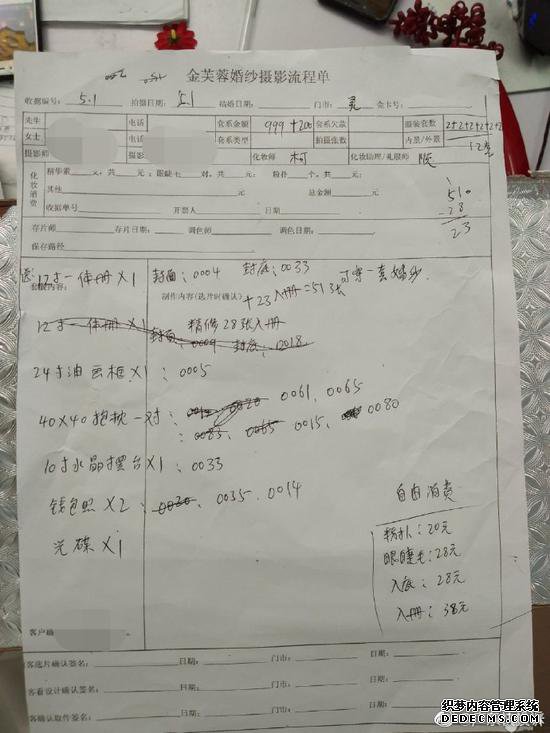 金芙蓉婚纱摄影流程单
收据编号: 5.1 拍摄日期: 5.1 结婚日期: 门市: 金卡号:
先生 电话 套系金额 999+200 套系欠款 服装套数 2+2+2+2+2+2
女士 电话 套系类型 拍摄张数 内景/外景 12套
摄影师 摄影 化妆师 柯 化妆助理/礼服师
化妆消费 精华素 元, 共 元; 眼睫毛 对, 共 元; 粉扑 个, 共 元;
其他 总金额 元 51
收据单号 开票人 日期 -28
存片师 存片日期: 调色师 调色日期: 23
保存路径
送: 12寸一体册X1 封面: 0004 封底: 0033
套系内容: 制作内容(选片时确认) +23入册=51张
12寸一体册X1 精修28张入册
封面: 0009 封底: 0018
24寸油画框X1: 0005
40X40抱枕一对: 0020 0061、0065
: 0083、0065 0015、0080
10寸水晶摆台X1: 0033
钱包照X2: 0020、0035、0014
光碟X1
自由消费
粉扑: 20元
眼睫毛: 28元
入底: 28元
入册: 38元
客户确
客选片确认签名: 日期: 门市: 日期:
客看设计确认签名: 日期: 门市: 日期:
客确认取件签名: 日期: 门市: 日期:
织梦内容管理系统
DEDECMS.COM